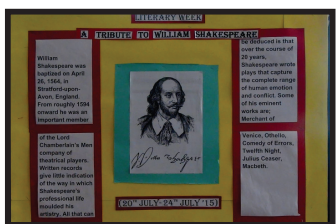 LITERARY WEEK
A TRIBUTE TO WILLIAM SHAKESPEARE
William
Shakespeare was
baptized on April
26, 1564, in
Stratford-upon-
Avon, England.
From roughly 1594
onward he was an
important member
of the Lord
Chamberlain's Men
company of
theatrical players.
Written records
give little indication
of the way in which
Shakespeare's
professional life
moulded his
artistry. All that can
be deduced is that
over the course of
20 years,
Shakespeare wrote
plays that capture
the complete range
of human emotion
and conflict. Some
of his eminent
works are;
Merchant of
Venice, Othello,
Comedy of Errors,
Twelfth Night,
Julius Ceaser,
Macbeth.
(20TH JULY-24TH JULY '15)